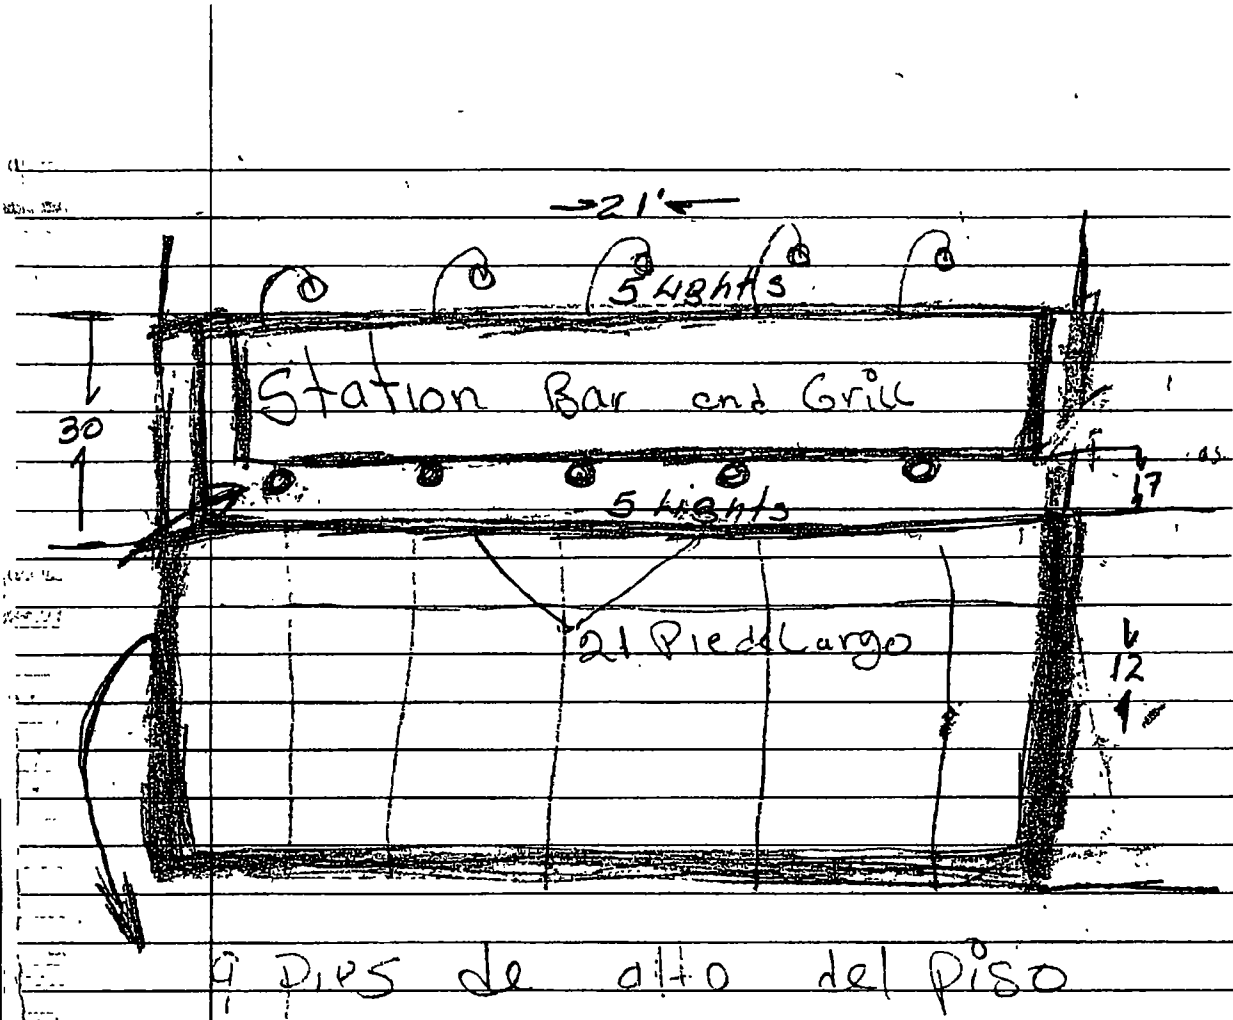 21'
5 Lights
Station Bar and Grill
30
17
5 Lights
21 Pie de Largo
12
9 Pies de alto del piso